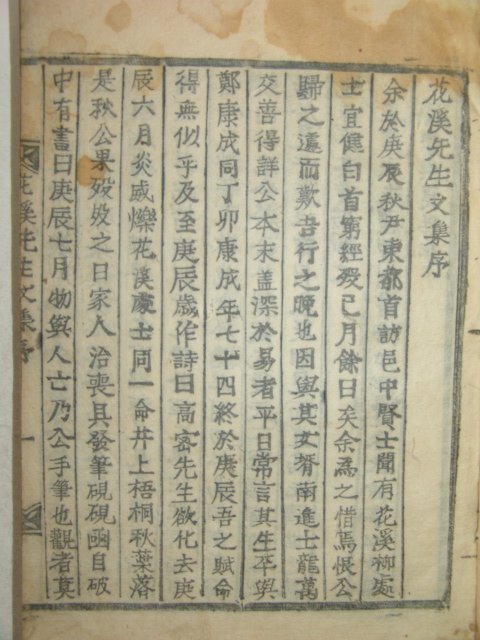 花溪先生文集序
余於庚辰秋尹東都首訪邑中賢士聞有花溪柳處
士宜健白首窮經歿已月餘日矣余爲之惜焉恨公
歸之遽而歎吾行之晩也因與其女壻南進士龍萬
交善得詳公本末盖深於易者平日常言其生卒與
鄭康成同丁卯康成年七十四終於庚辰吾之賦命
得無似乎及至庚辰歲作詩曰高密先生欲化去庚
辰六月炎威爍花溪蒙士同一命井上梧桐秋葉落
是秋公果歿歿之日家人治喪具發筆硯硯凾自破
中有書曰庚辰七月物與人亡乃公手筆也觀者莫
花溪先生文集序 一